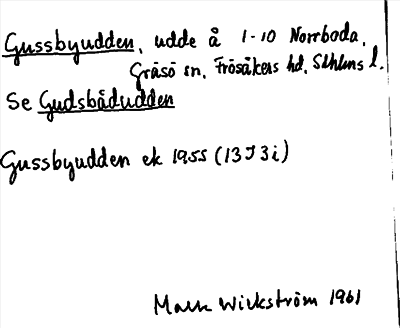 Gussbyudden, udde å 1-10 Norrboda,
Gräsö sn, Frösåkers hd, Sthlms l.
Se Gudsbådudden
Gussbyudden ek 1955 (13J3i)
Wickström 1961